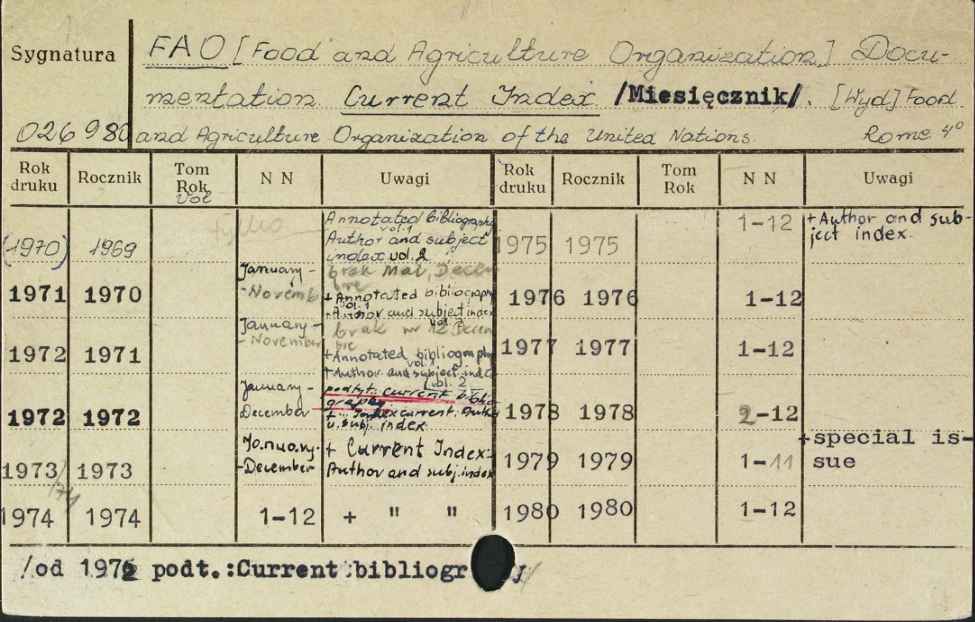 Sygnatura
FAO [Food and Agriculture Organization] Docu-
mentation Current Index /Miesięcznik/. [Wyd] Food
026980 and Agriculture Organization of the United Nations. Rome 4°
Rok druku Rocznik Tom Rok Vol N N Uwagi Rok druku Rocznik Tom Rok N N Uwagi
(1970) 1969 tylko Annotated bibliography
vol.1
Author and subject
index vol. 2
1975 1975 1-12 + Author and sub-
ject index.
1971 1970 January -
- Novemb
brak Mai, Decem
bre
+ Annotated bibliography
vol.1
+ Author and subject index
vol. 2
1976 1976 1-12
1972 1971 January -
- November
brak nr 12 Decem
bre
+ Annotated bibliography
vol.1
+ Author and subject ind.
vol. 2
1977 1977 1-12
1972 1972 January -
December
podtyt: current biblio
graphy.
+ Index current. Auth.
u. subj. index.
1978 1978 2-12
1973/74 1973 January-
-December
+ Current Index:
Author and subj. index
1979 1979 1-11 +special is-
sue
1974 1974 1-12 + " "
1980 1980 1-12
/od 1972 podt.:Current bibliogr y/